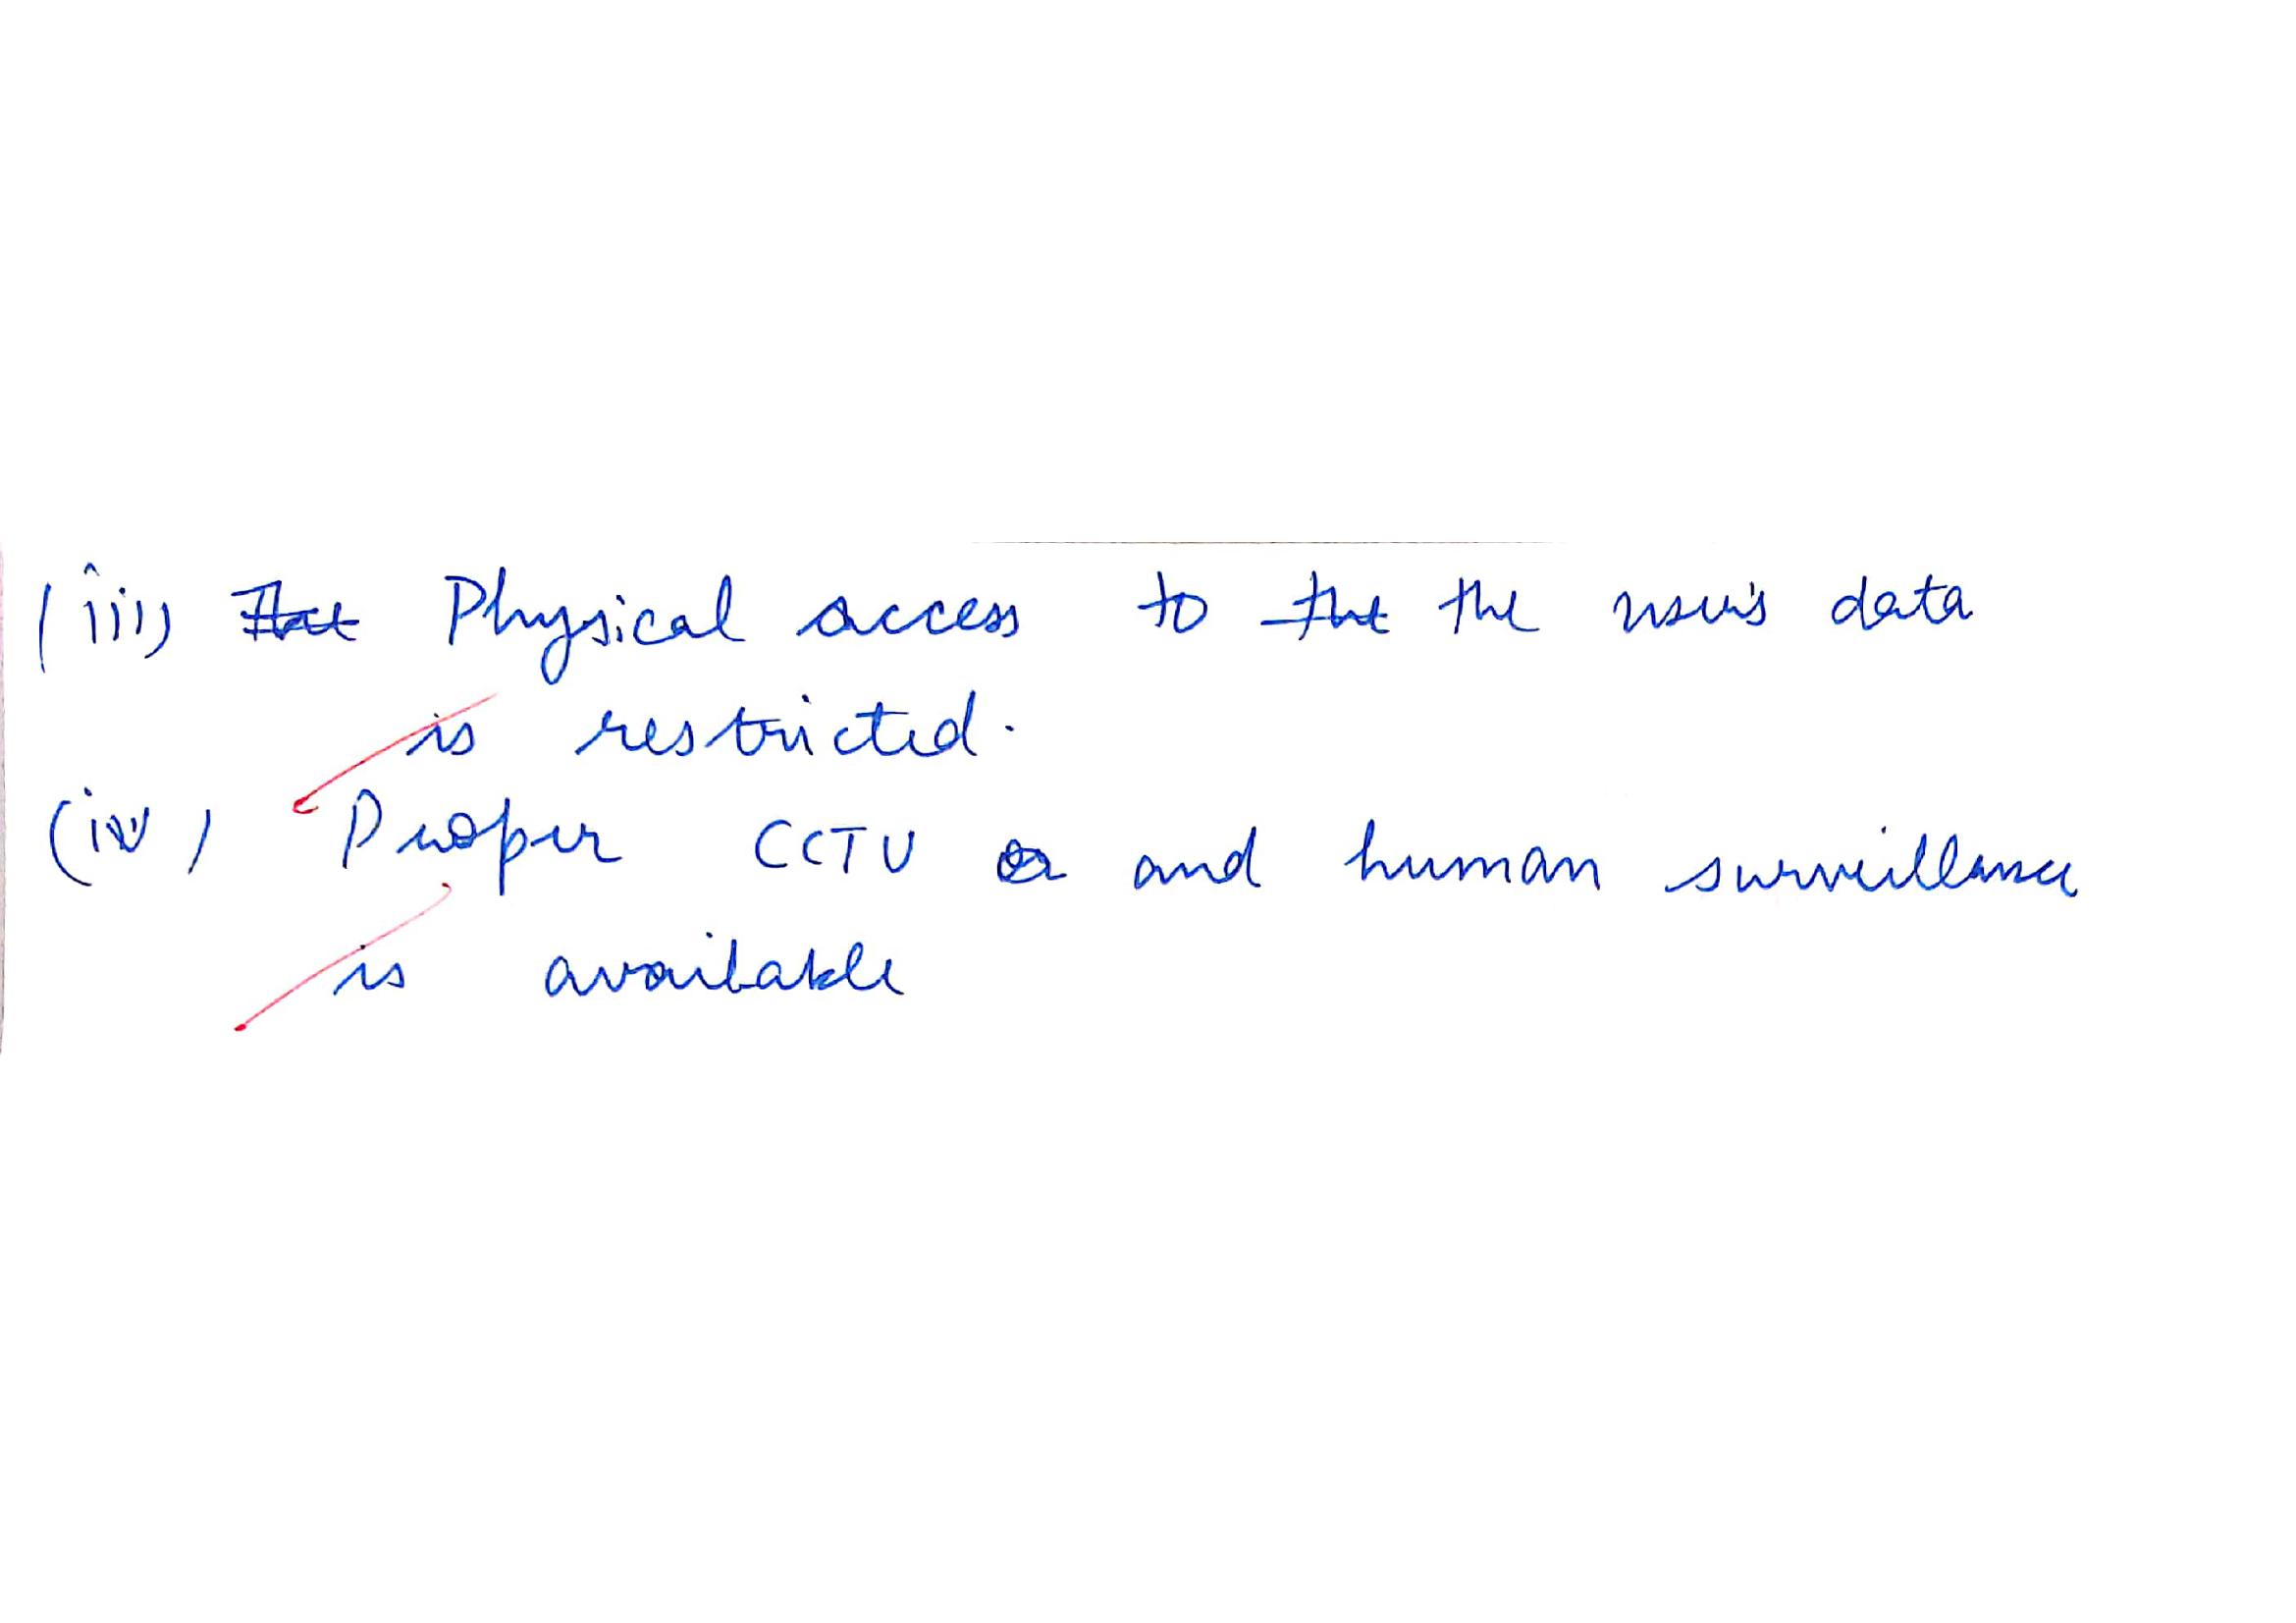 (iii) That Physical access to the the user's data
is restricted.
(iv) Proper CCTV or and human surveillance
is available